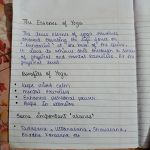 The Essence of Yoga
The true essence of yoga revolves
around elevating the life force or
'Kundalini' at the base of the spine.
It aims to achieve this through a series
of physical and mental exercises. At the
physical level
Benefits of Yoga
keeps mind calm
mental exercises
Enhances physical power
Helps in
Some important "asanas"
Tadasana, Uttanasana, Shavasana,
Baddha Konasana etc